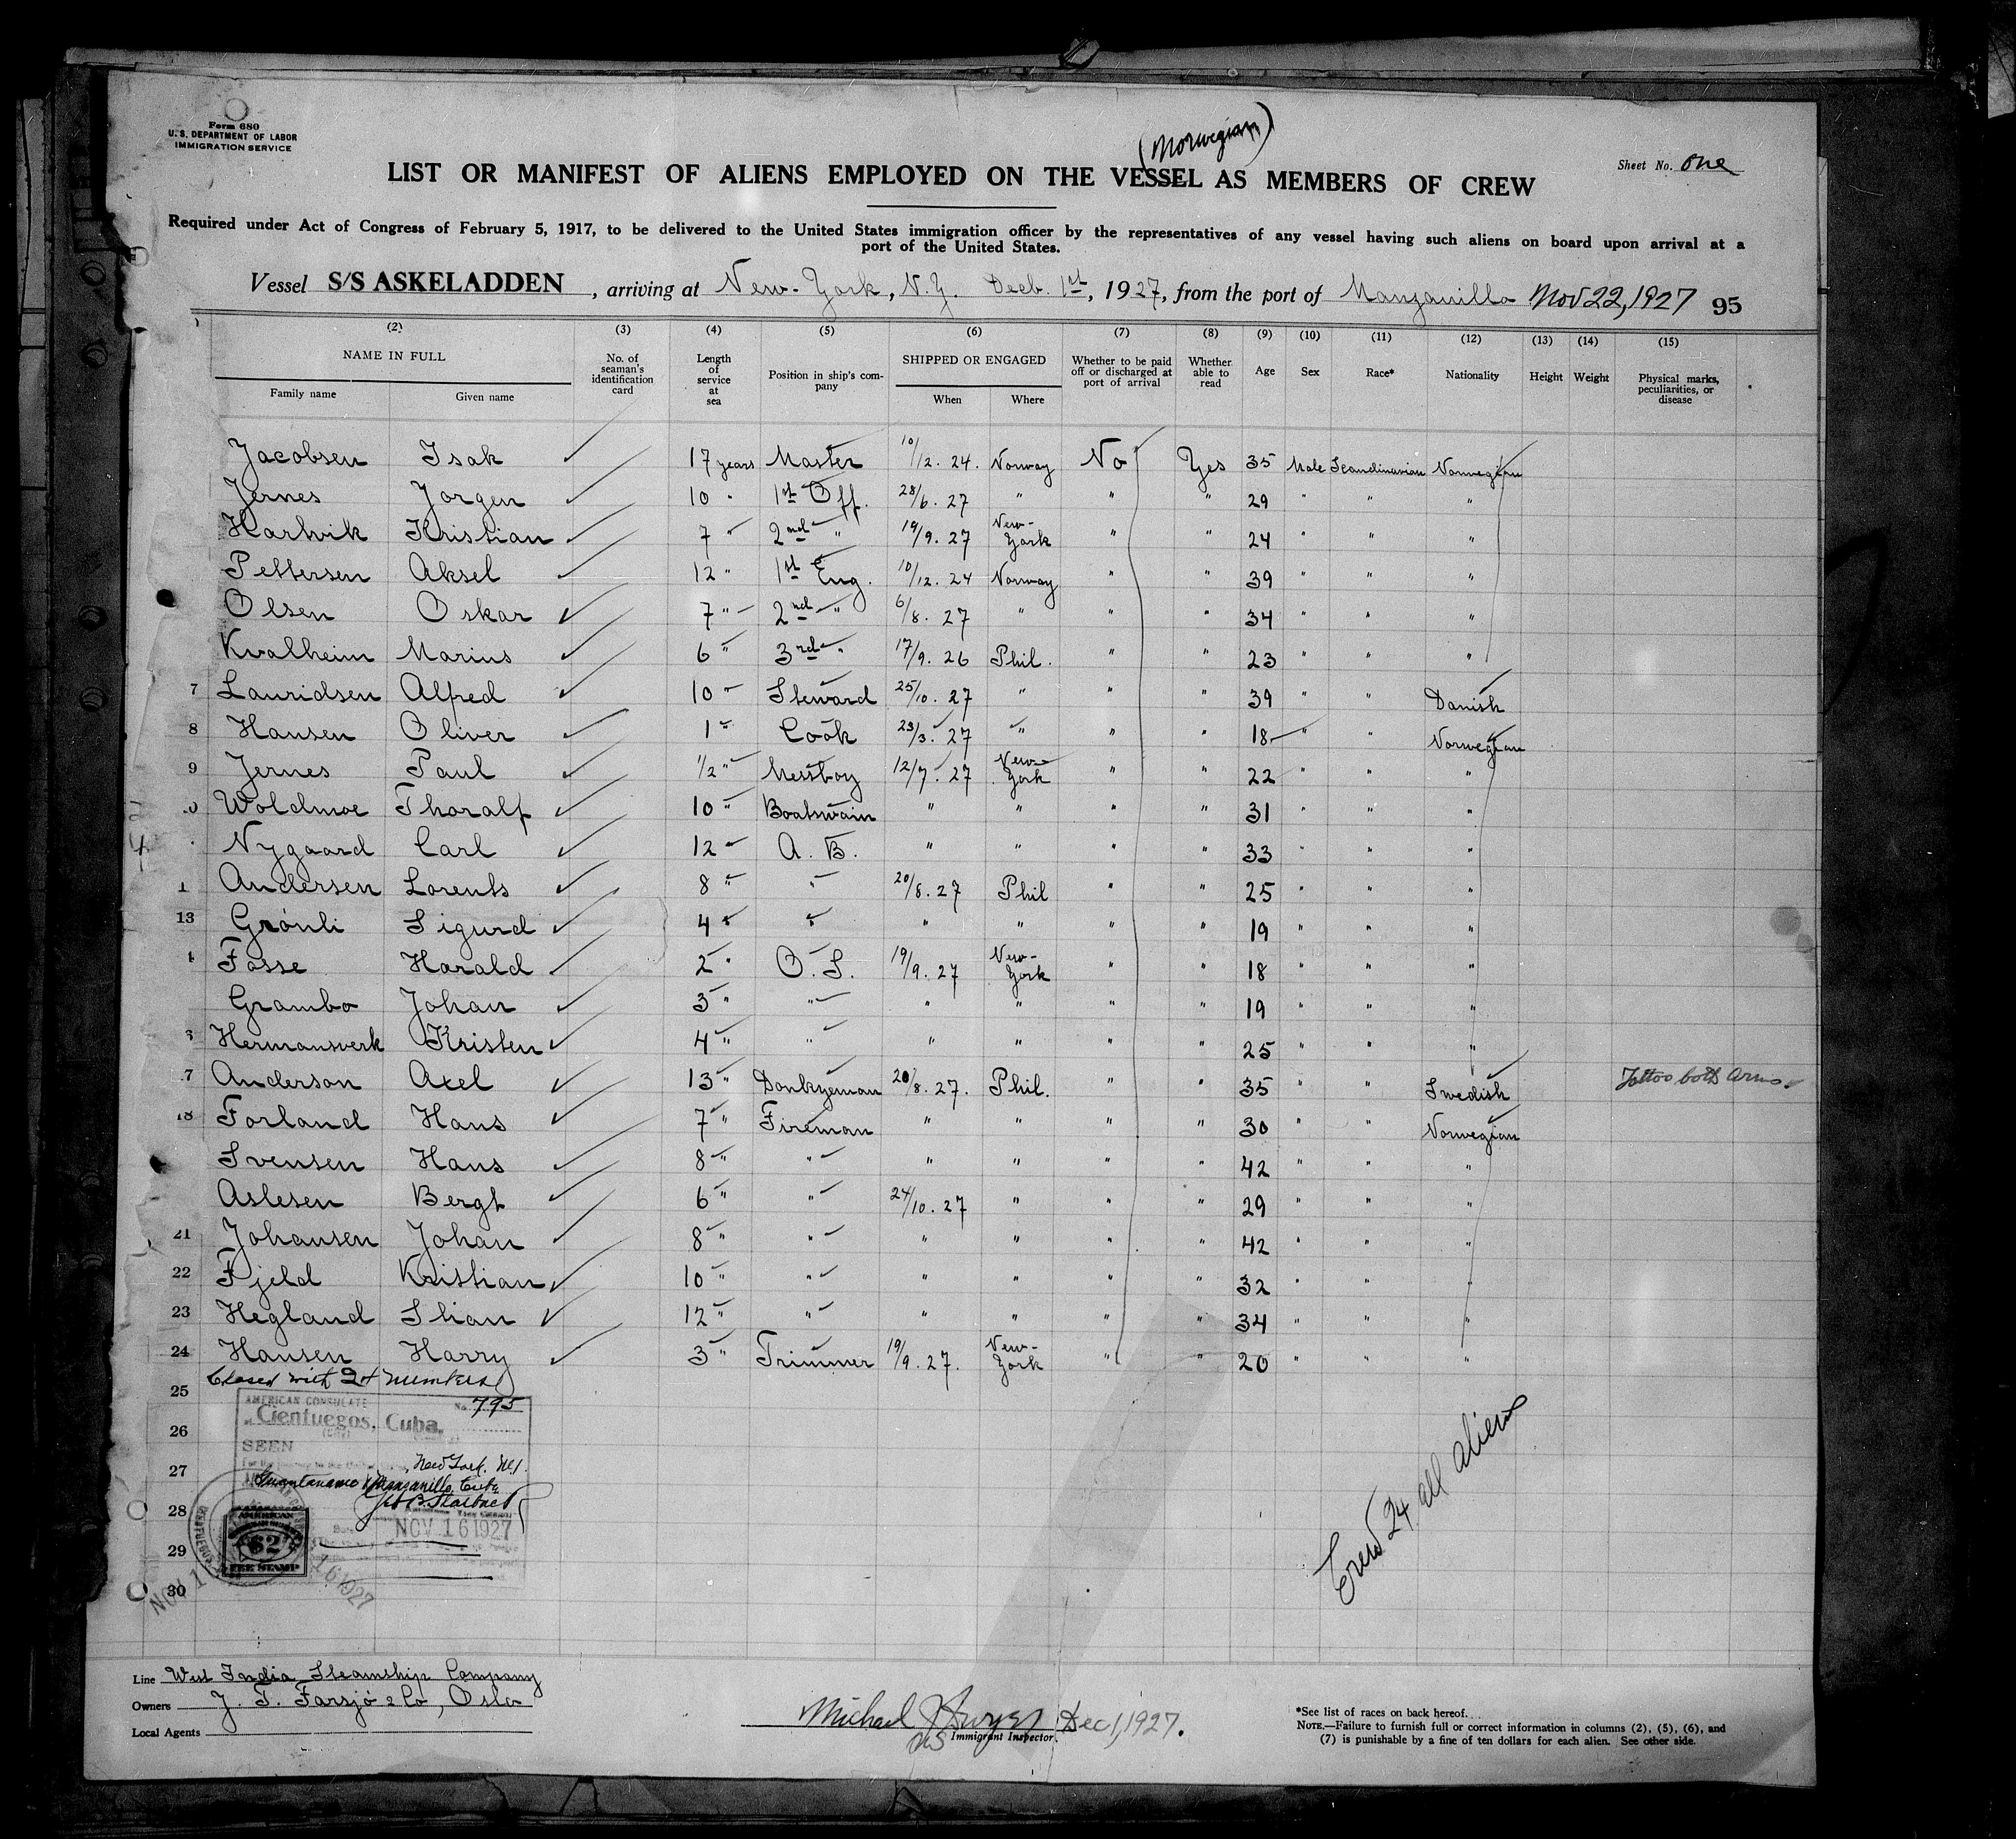 Form 680
U. S. DEPARTMENT OF LABOR
IMMIGRATION SERVICE
(Norwegian)
Sheet No. One
LIST OR MANIFEST OF ALIENS EMPLOYED ON THE VESSEL AS MEMBERS OF CREW
Required under Act of Congress of February 5, 1917, to be delivered to the United States immigration officer by the representatives of any vessel having such aliens on board upon arrival at a
port of the United States.
Vessel S/S ASKELADDEN, arriving at New-York, N.Y. Decb. 1st, 1927, from the port of Manzanillo Nov 22, 1927 95
(2) (3) (4) (5) (6) (7) (8) (9) (10) (11) (12) (13) (14) (15)
NAME IN FULL Family name Given name
No. of seaman's identification card
Length of service at sea
Position in ship's company
SHIPPED OR ENGAGED When Where
Whether to be paid off or discharged at port of arrival
Whether able to read
Age Sex Race* Nationality Height Weight
Physical marks, peculiarities, or disease
Jacobsen Isak 17 years Master 10/12. 24. Norway No Yes 35 Male Scandinavian Norwegian
Jernes Jorgen 10 " 1st Off. 28/6. 27 " " " 29 " " "
Hartvik Kristian 7 " 2nd " 19/9. 27 New-York " " 24 " " "
Pettersen Aksel 12 " 1st Eng. 10/12. 24 Norway " " 39 " " "
Olsen Oskar 7 " 2nd " 6/8. 27 " " " 34 " " "
Kvalheim Marius 6 " 3rd " 17/9. 26 Phil. " " 23 " " "
7 Lauridsen Alfred 10 " Steward 25/10. 27 " " " 39 " " Danish
8 Hansen Oliver 1 " Cook 23/3. 27 " " " 18 " " Norwegian
9 Jernes Paul 1/2 " Messboy 12/7. 27 New-York " " 22 " " "
Woldmoe Thoralf 10 " Boatswain " " " " 31 " " "
Nygaard Carl 12 " A. B. " " " " 33 " " "
Andersen Lorents 8 " " 20/8. 27 Phil " " 25 " " "
13 Grönli Sigurd 4 " " " " " " 19 " " "
Fosse Harald 2 " O. S. 19/9. 27 New-York " " 18 " " "
Grambo Johan 3 " " " " " " 19 " " "
Hermansverk Kristen 4 " " " " " " 25 " " "
7 Anderson Axel 13 " Donkeyman 20/8. 27. Phil. " " 35 " " Swedish Tattoo both arms.
18 Forland Hans 7 " Fireman " " " " 30 " " Norwegian
Svensen Hans 8 " " " " " " 42 " " "
Aslesen Bergt 6 " " 24/10. 27 " " " 29 " " "
21 Johansen Johan 8 " " " " " " 42 " " "
22 Fjeld Kristian 10 " " " " " " 32 " " "
23 Hegland Stian 12 " " " " " " 34 " " "
24 Hansen Harry 3 " Trimmer 19/9. 27. New-York " " 20 " " "
Closed with 24 members
25
26
27
28
29
30
AMERICAN CONSULATE
No. 795
at Cienfuegos, Cuba.
SEEN
New York. N.Y.
Guantanamo & Manzanillo, Cuba
NOV 16 1927
AMERICAN
$2
FEE STAMP
NOV 16 1927
Crew 24 all aliens
Line West India Steamship Company
Owners J. T. Farsjö & Co, Oslo
Local Agents
Michael Dec 1, 1927.
Immigrant Inspector.
*See list of races on back hereof.
NOTE.—Failure to furnish full or correct information in columns (2), (5), (6), and
(7) is punishable by a fine of ten dollars for each alien. See other side.